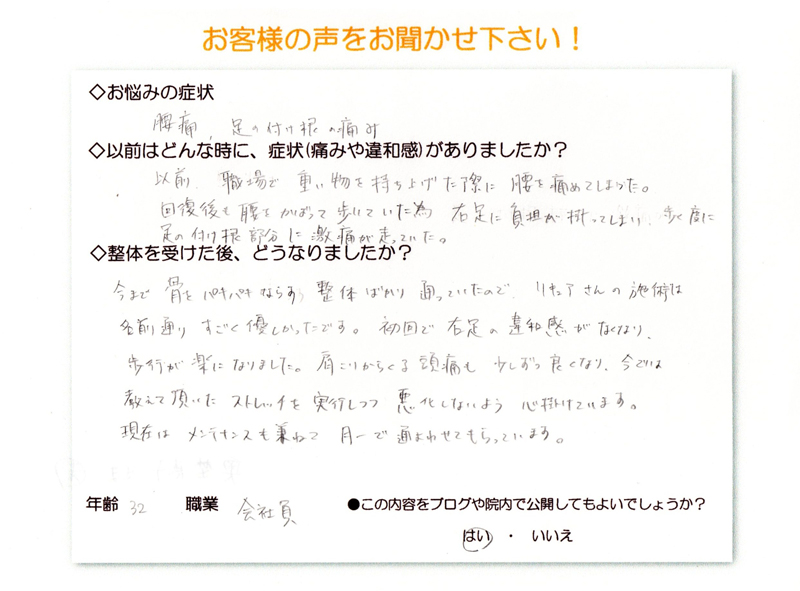 お客様の声をお聞かせ下さい！
◇お悩みの症状
腰痛、足の付け根の痛み
◇以前はどんな時に、症状(痛みや違和感)がありましたか？
以前、職場で重い物を持ち上げた際に腰を痛めてしまった。
回復後も腰をかばって歩いていた為 右足に負担が掛ってしまい、歩く度に
足の付け根部分に激痛が走っていた。
◇整体を受けた後、どうなりましたか？
今まで骨をバキバキならす整体ばかり通っていたので、リキュアさんの施術は
名前通りすごく優しかったです。初回で右足の違和感がなくなり、
歩行が楽になりました。肩こりからくる頭痛も少しずつ良くなり、今では
教えて頂いたストレッチを実行しつつ悪化しないよう心掛けています。
現在はメンテナンスも兼ねて月一で通よわせてもらっています。
年齢 32 職業 会社員 ●この内容をブログや院内で公開してもよいでしょうか？
はい ・ いいえ